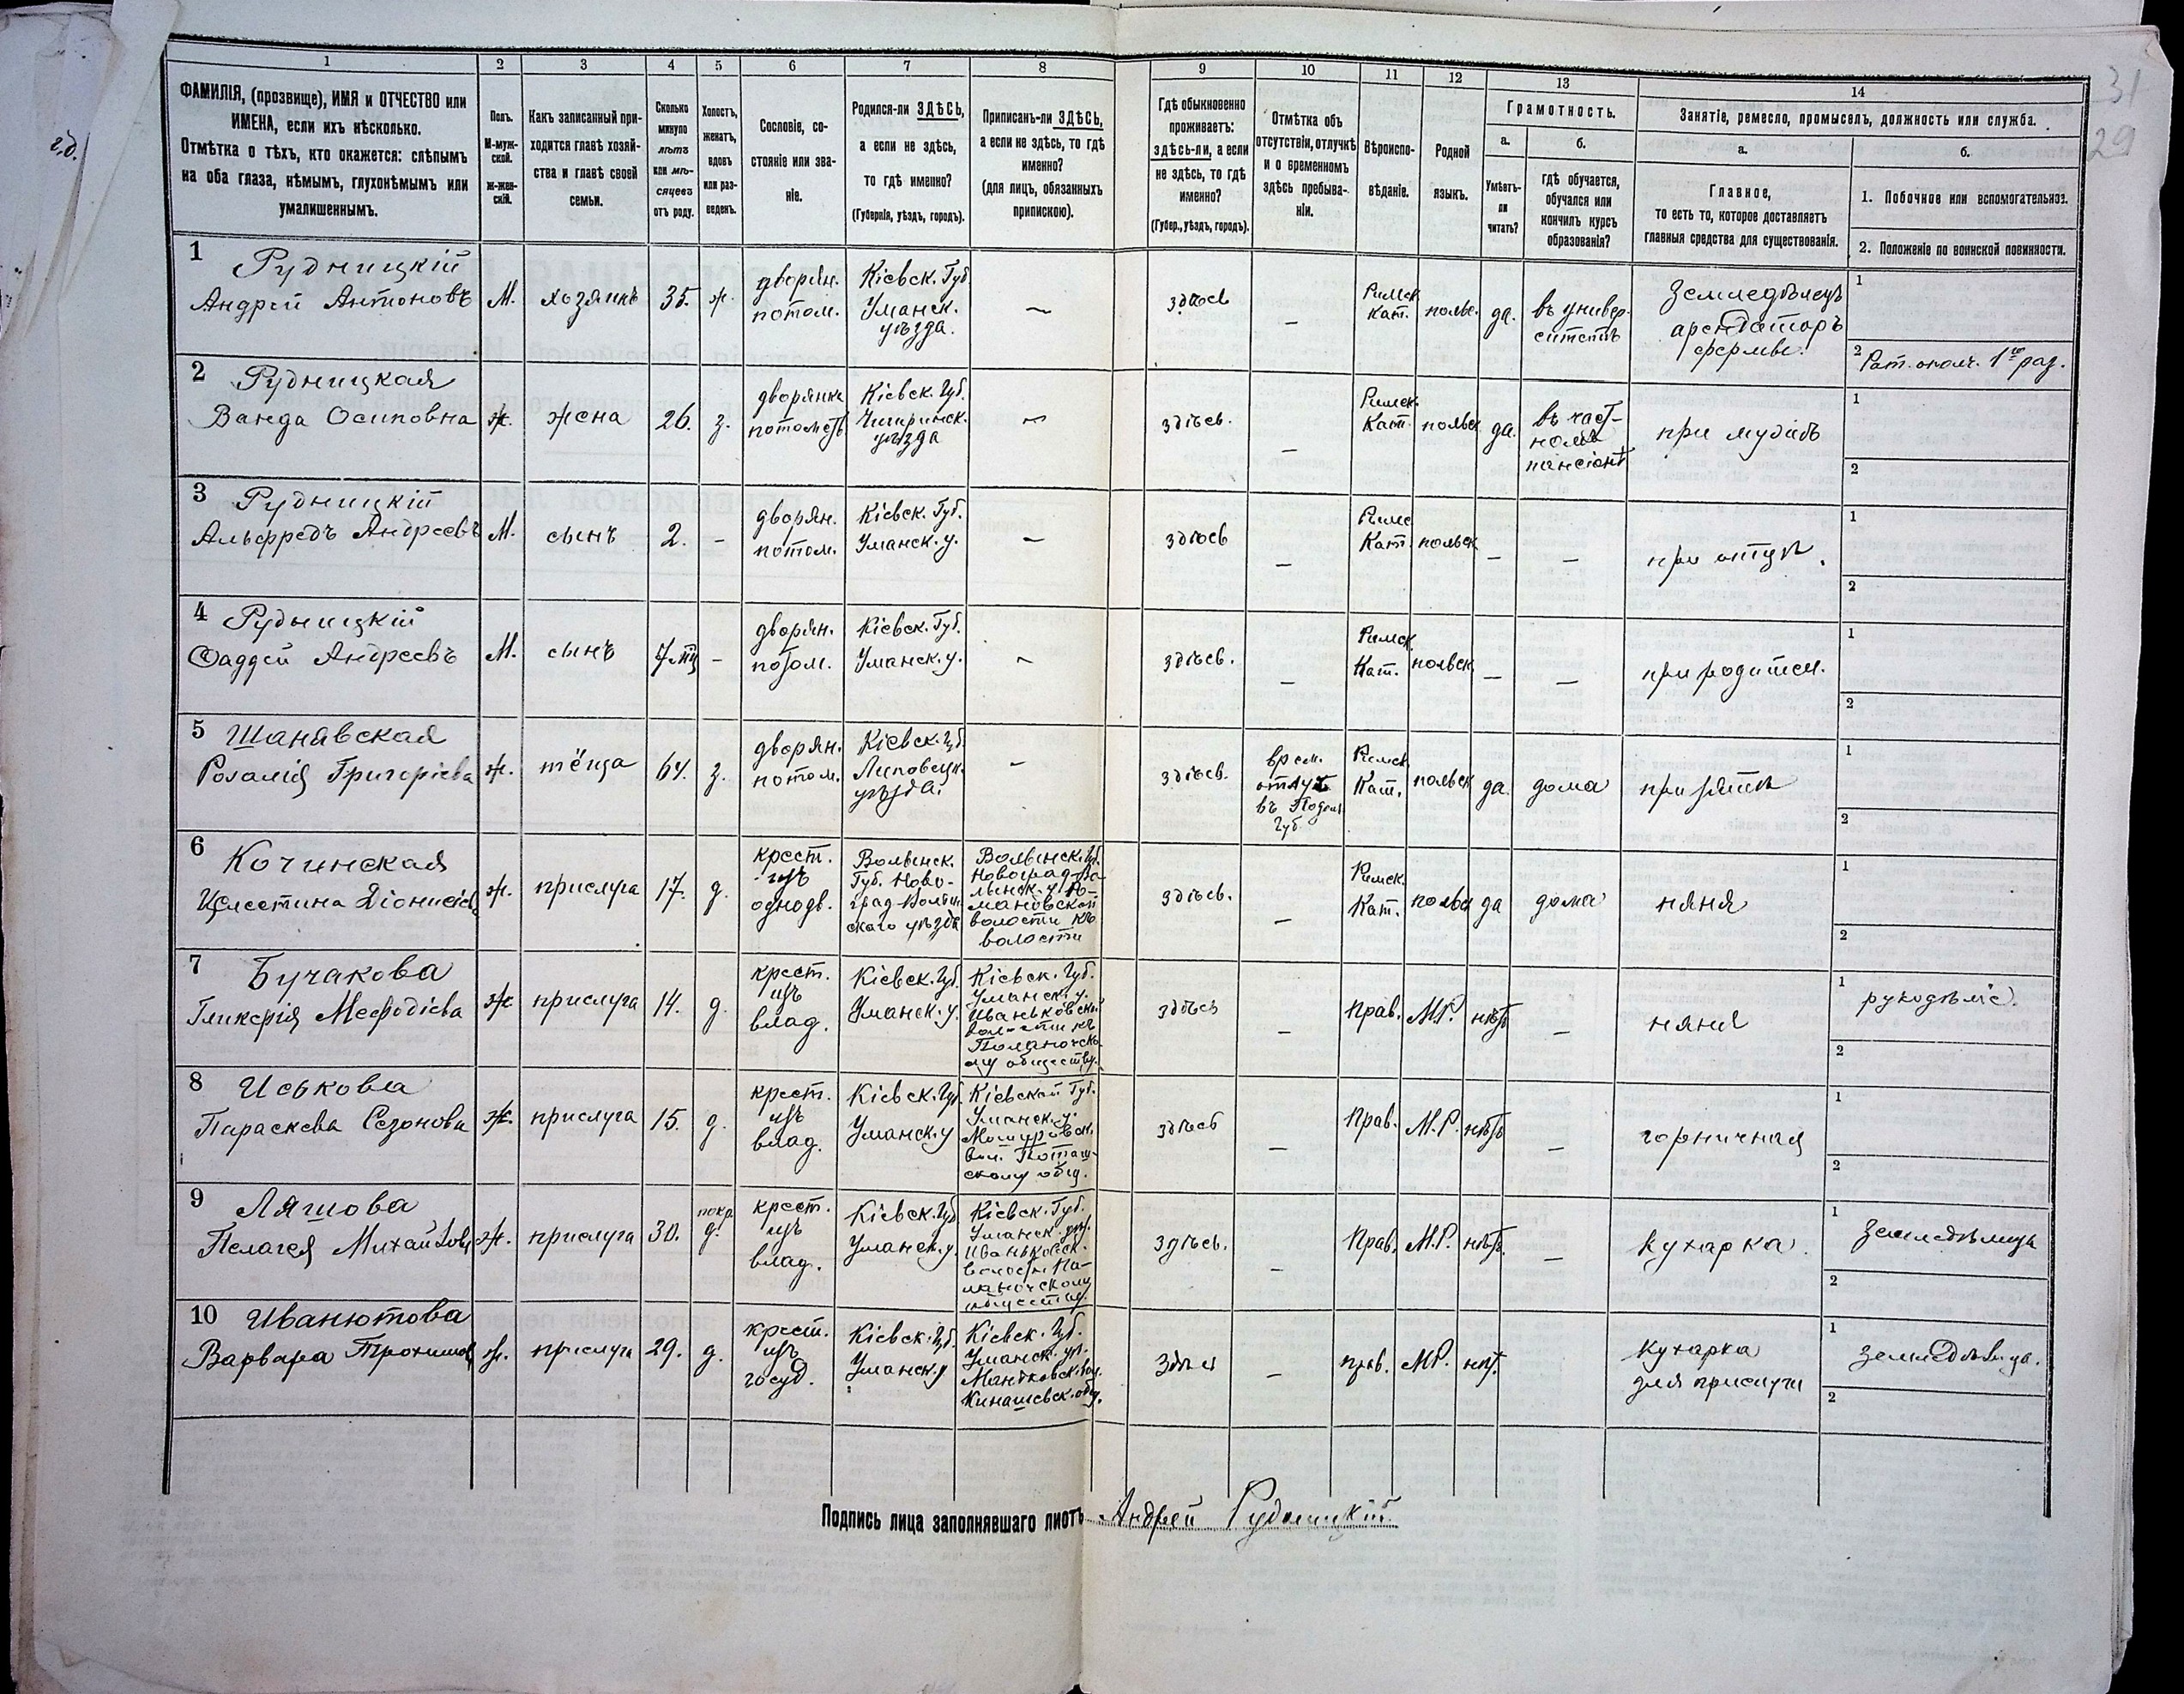 г.д.
31
29
1
2
3
4
5
6
7
8
9
10
11
12
13
14
ФАМИЛІЯ, (прозвище), ИМЯ и ОТЧЕСТВО или
ИМЕНА, если ихъ нѣсколько.
Отмѣтка о тѣхъ, кто окажется: слѣпымъ
на оба глаза, нѣмымъ, глухонѣмымъ или
умалишеннымъ.
Полъ.
М-муж-
ской.
ж-жен-
скій.
Какъ записанный при-
ходится главѣ хозяй-
ства и главѣ своей
семьи.
Сколько
минуло
лѣтъ
или мѣ-
сяцевъ
отъ роду.
Холостъ,
женатъ,
вдовъ
или раз-
веденъ.
Сословіе, со-
стояніе или зва-
ніе.
Родился-ли ЗДѢСЬ,
а если не здѣсь,
то гдѣ именно?
(Губернія, уѣздъ, городъ).
Приписанъ-ли ЗДѢСЬ,
а если не здѣсь, то гдѣ
именно?
(для лицъ, обязанныхъ
припискою).
Гдѣ обыкновенно
проживаетъ:
здѣсь-ли, а если
не здѣсь, то гдѣ
именно?
(Губер., уѣздъ, городъ).
Отмѣтка объ
отсутствіи, отлучкѣ
и о временномъ
здѣсь пребыва-
ніи.
Вѣроиспо-
вѣданіе.
Родной
языкъ.
Грамотность.
а.
Умѣетъ-
ли
читать?
б.
гдѣ обучается,
обучался или
кончилъ курсъ
образованія?
Занятіе, ремесло, промыселъ, должность или служба.
а.
Главное,
то есть то, которое доставляетъ
главныя средства для существованія.
б.
1. Побочное или вспомогательное.
2. Положеніе по воинской повинности.
1
Рудницкій
Андрей Антоновъ
М.
хозяинъ
35.
ж.
дворян.
потом.
Кіевск. Губ.
Уманск.
уѣзда.
—
здѣсь
—
Римск.
Кат.
польс.
да.
въ универ-
ситетѣ
Земледѣлецъ
арендаторъ
фермы.
1
2
Рат. ополч. 1го раз.
2
Рудницкая
Ванда Осиповна
ж.
жена
26.
з.
дворянка
потомств.
Кіевск. Губ.
Чигринск.
уѣзда
—
здѣсь.
—
Римск.
Кат.
польск
да.
въ част-
номъ
пансіонѣ
при мужѣ
1
2
3
Рудницкій
Альфредъ Андреевъ
М.
сынъ
2.
-
дворян.
потом.
Кіевск. Губ.
Уманск. у.
—
здѣсь
—
Римс
Кат.
польск
—
—
при отцѣ.
1
2
4
Рудницкій
Фаддей Андреевъ
М.
сынъ
-
дворян.
потом.
Кіевск. Губ.
Уманск. у.
—
здѣсь.
—
Римск.
Кат.
польск
—
—
при родител.
1
2
5
Шанявская
Розалія Григоріева
ж.
тёща
64.
з.
дворян.
потом.
Кіевск. Губ.
Липовецк.
уѣзда.
—
здѣсь.
врем.
отлуч.
въ Подол.
Губ.
Римск
Кат.
польск
да.
дома
при зятѣ
1
2
6
Кочинская
Целестина Діонисіев.
ж.
прислуга
17.
д.
крест.
изъ
однодв.
Волынск.
Губ. Ново-
град-Волын
скаго уѣзда
Волынск. Губ.
Новоград-Во-
лынск. у. Ро-
мановской
волости къ
волости
здѣсь.
—
Римск.
Кат.
польск
да
дома
няня
1
2
7
Бучакова
Гликерія Мефодіева
ж
прислуга
14.
д.
крест.
изъ
влад.
Кіевск. Губ.
Уманск. у.
Кіевск. Губ.
Уманск. у.
Иваньковской
волости къ
Поланочско-
му обществу.
здѣсь
—
Прав.
М.Р.
нѣтъ
—
няня
1
рукодѣліе.
2
8
Иськова
Параскева Сезонова
ж.
прислуга
15.
д.
крест.
изъ
влад.
Кіевск. Губ.
Уманск. у
Кіевской Губ.
Уманск. у.
Мошуровск.
вол. Поташ-
скому общ.
здѣсь
—
Прав.
М.Р.
нѣтъ
—
горничная
1
2
9
Ляшова
Пелагея Михайлова
ж.
прислуга
30.
д.
крест.
изъ
влад.
Кіевск. Губ.
Уманск. у.
Кіевск. Губ.
Уманск. уѣз.
Иваньковск.
волости По-
ланочскому
обществу.
здѣсь.
—
Прав.
М.Р.
нѣтъ.
—
кухарка.
1
Земледѣлица
2
10
Иванютова
Варвара Трохимов.
ж.
прислуга
29.
д.
крест.
изъ
госуд.
Кіевск. Губ.
Уманск. у
Кіевск. Губ.
Уманск. уѣ.
Маньковск. вол.
Кинашевск. общ.
здѣсь
—
прав.
М.Р.
нѣт.
кухарка
для прислуги
1
земледѣлица.
2
Подпись лица заполнявшаго листъ Андрей Рудницкій